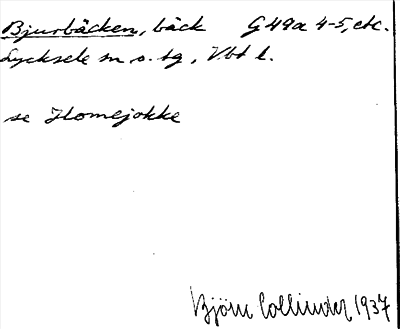 Bjurbäcken, bäck G 49a 4-5, etc.
Lycksele sn o. tg, Vbt l.
se Homejokke
Björn Collinder 1937